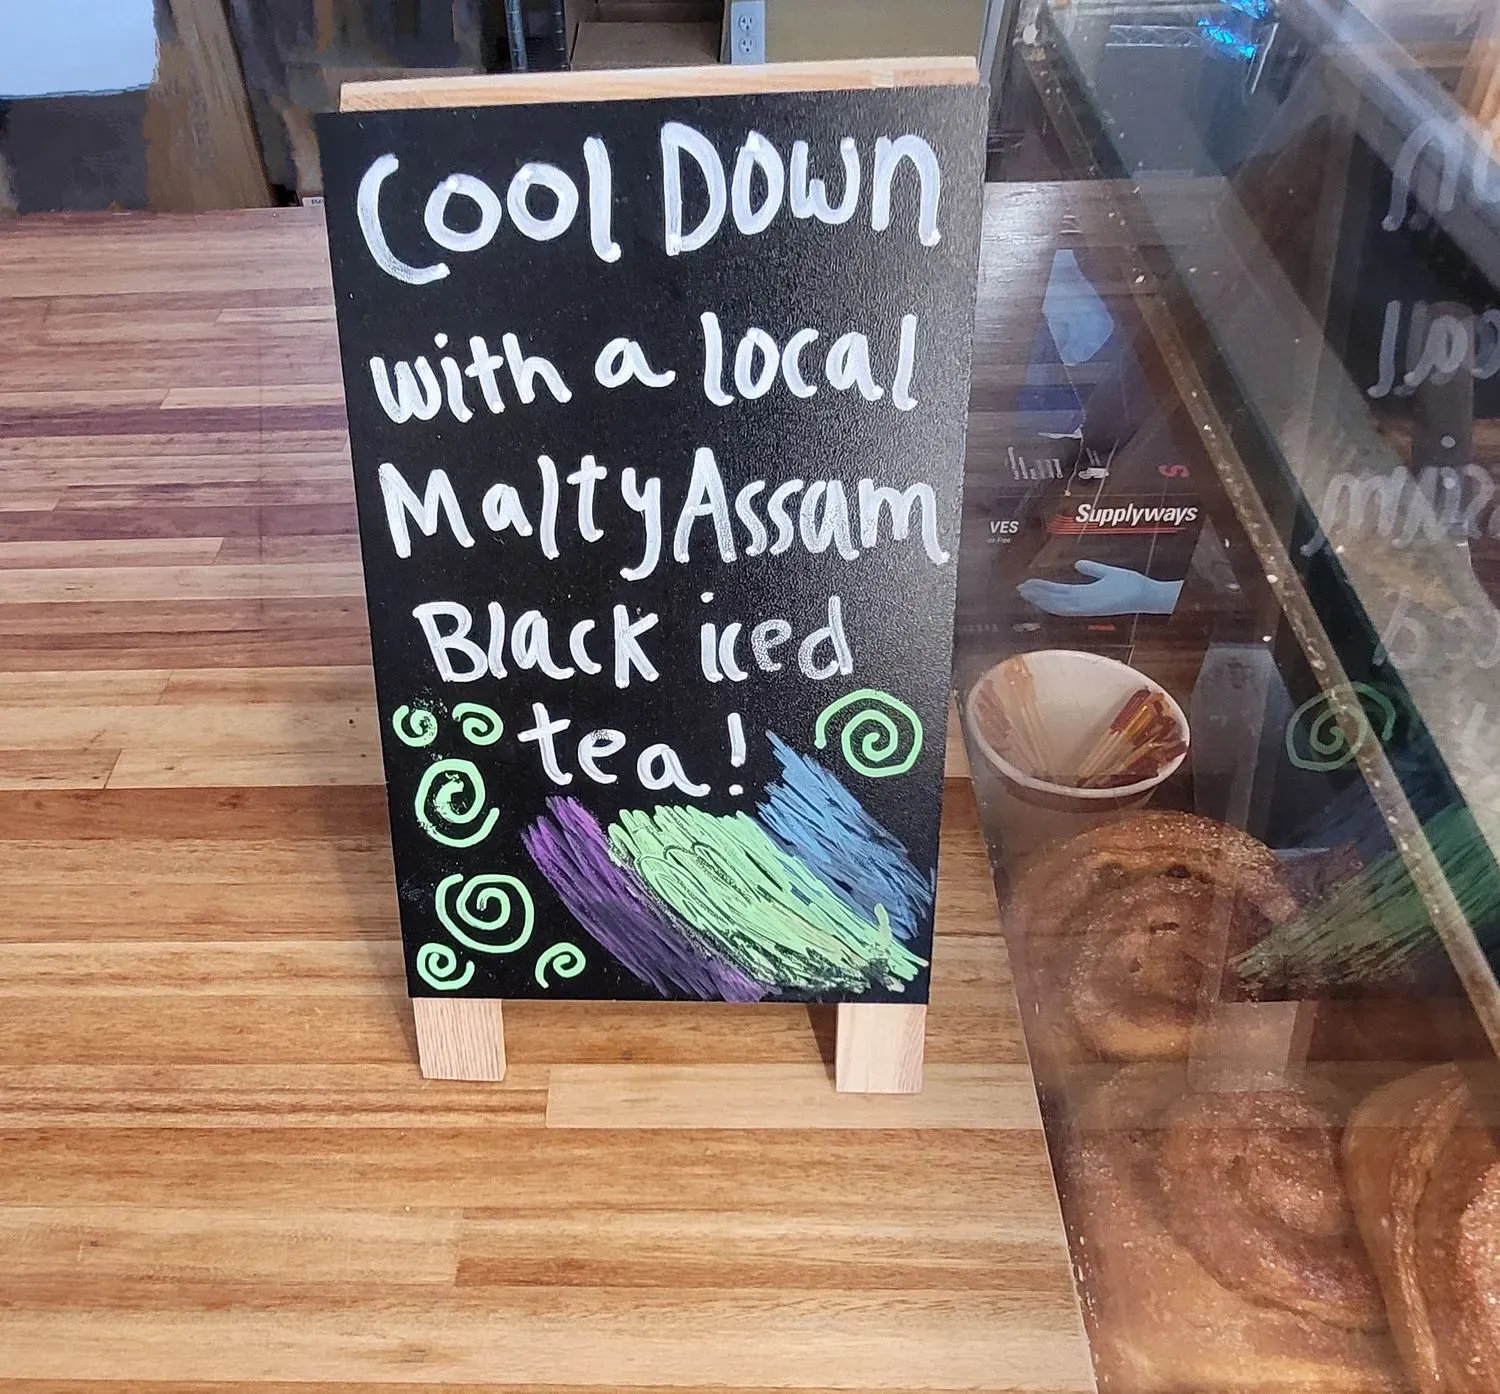 Cool Down
with a local
Malty Assam
Black iced
tea!
VES
Supplyways